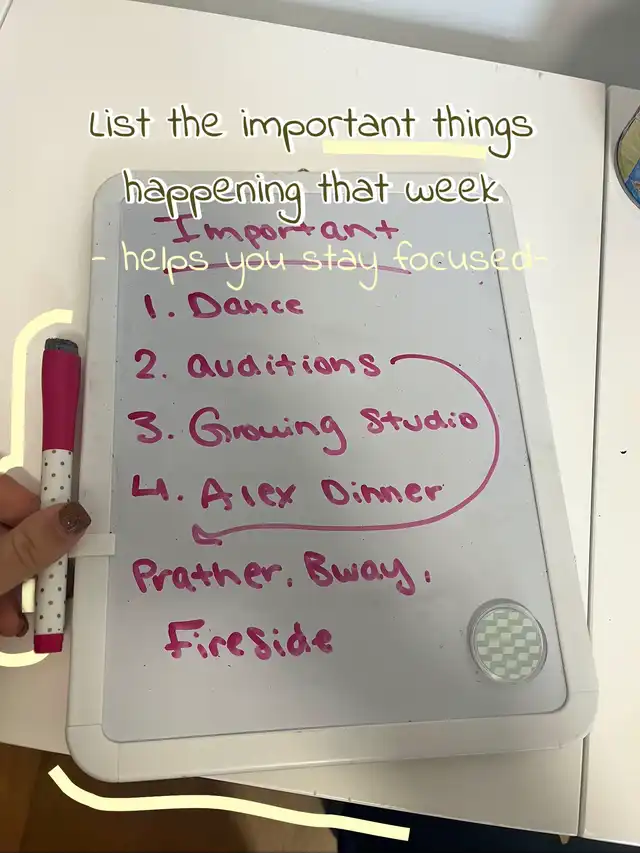 List the important things
happening that week
Important
- helps you stay focused-
1. Dance
2. auditions
3. Growing Studio
4. Alex Dinner
Prather, Bway,
Fireside